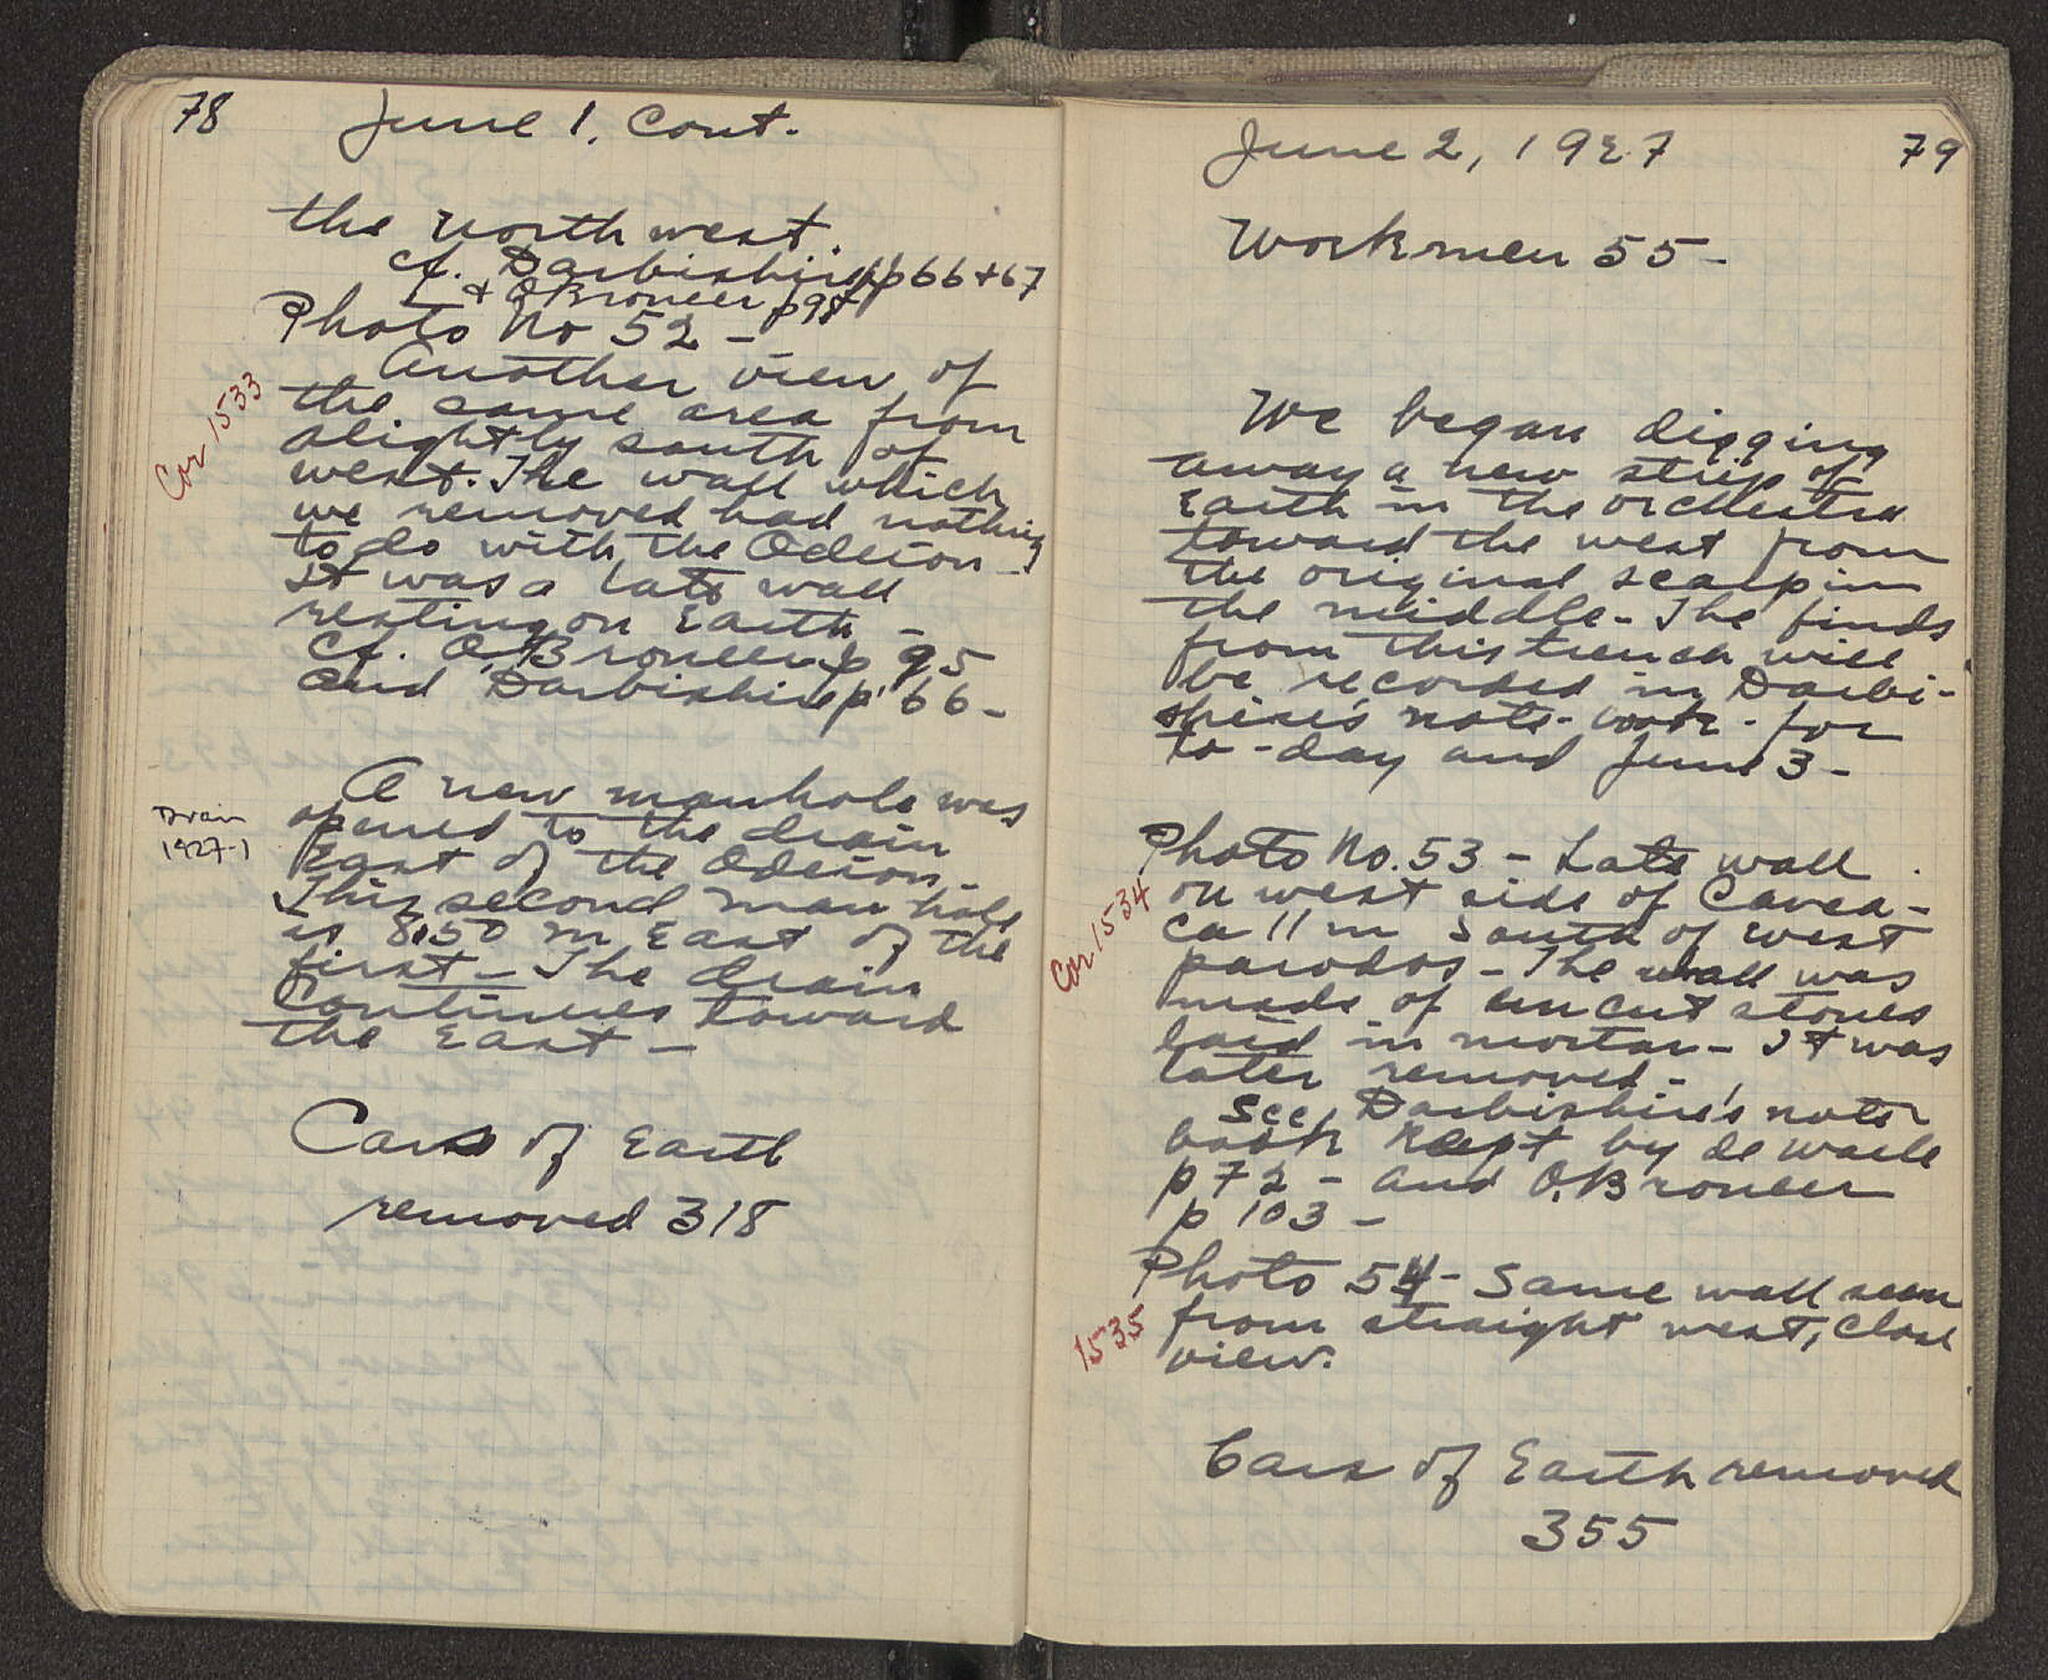 78 June 1. Cont.
the north west.
cf. Darbishire pp 66 + 67
+ O.Broneer p 98
Photo No 52 -
Another view of
the same area from
slightly south of
west. The wall which
we removed had nothing
to do with the Odeion -
It was a late wall
resting on Earth -
Cf. O.Broneer p 95
and Darbishire p 66 -
Cor 1533
A new manhole was
opened to the drain
East of the Odeion -
This second man hole
is 8.50 m East of the
first - The drain
Continues toward
the East -
Drain
1927-1
Cars of Earth
removed 318
June 2, 1927 79
Workmen 55 -
We began digging
away a new strip of
Earth in the orchestra
toward the west from
the original scarp in
the middle - The finds
from this trench will
be recorded in Darbi-
shire's note-book - for
to-day and June 3 -
Photo No. 53 - Late wall
on west side of Cavea -
ca 11 m South of west
parodos - The wall was
made of uncut stones
laid in mortar - It was
later removed -
See Darbishire's note
book kept by de Waele
p 72 - and O.Broneer
p 103 -
Cor. 1534
Photo 54 - Same wall seen
from straight west, close
view.
1535
Cars of Earth removed
355